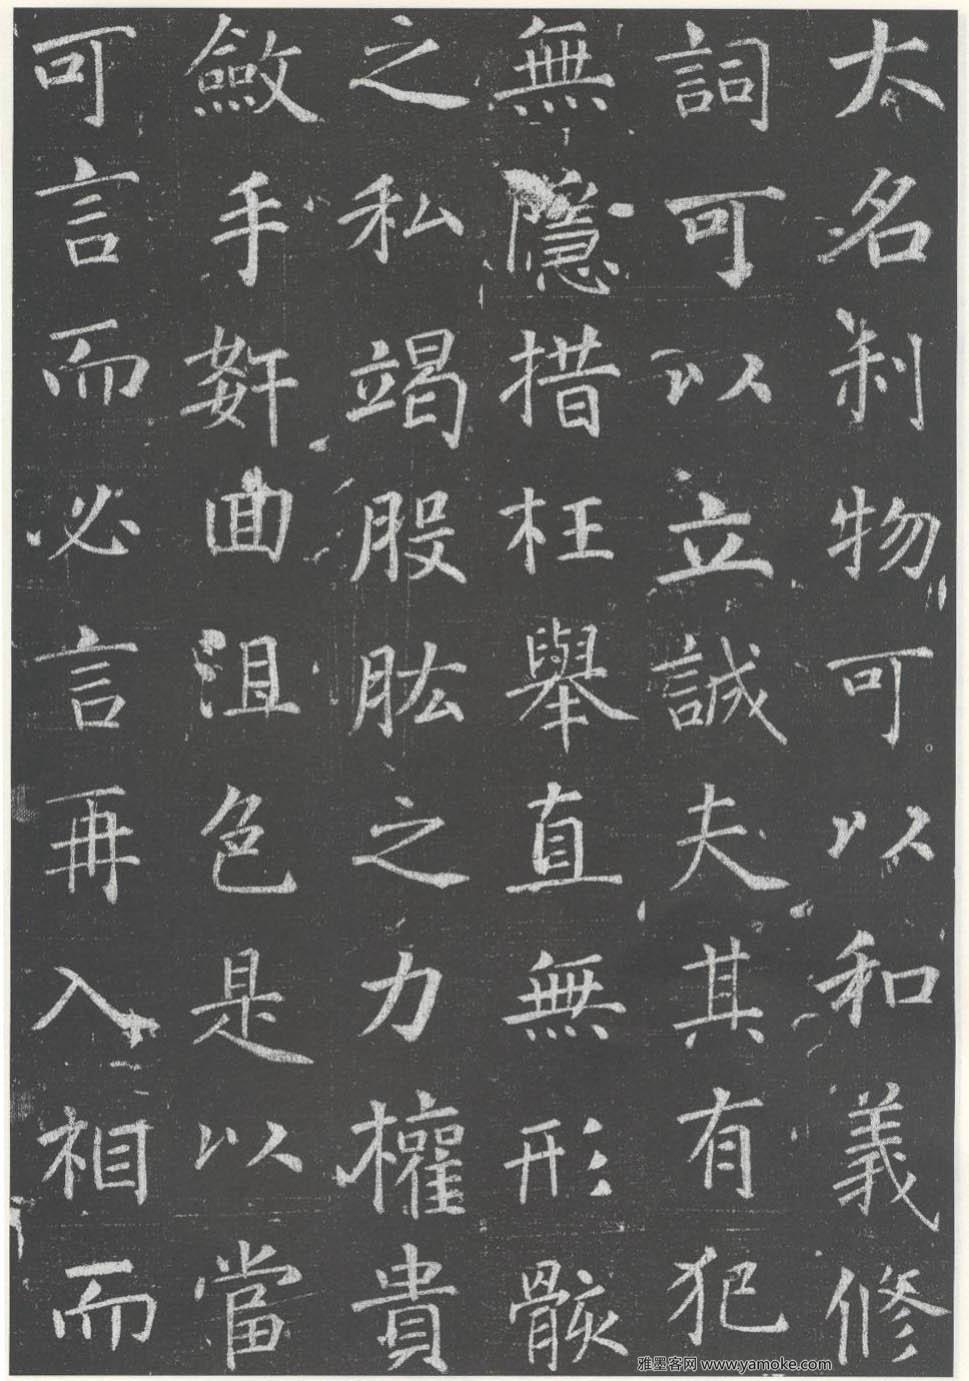 太名剎物可以和義修
詞可以立誠夫其有犯
無隱措枉舉直無形骸
之私竭股肱之力權貴
斂手姧回沮色是以當
可言而必言再入相而
雅墨客网 www.yamoke.com